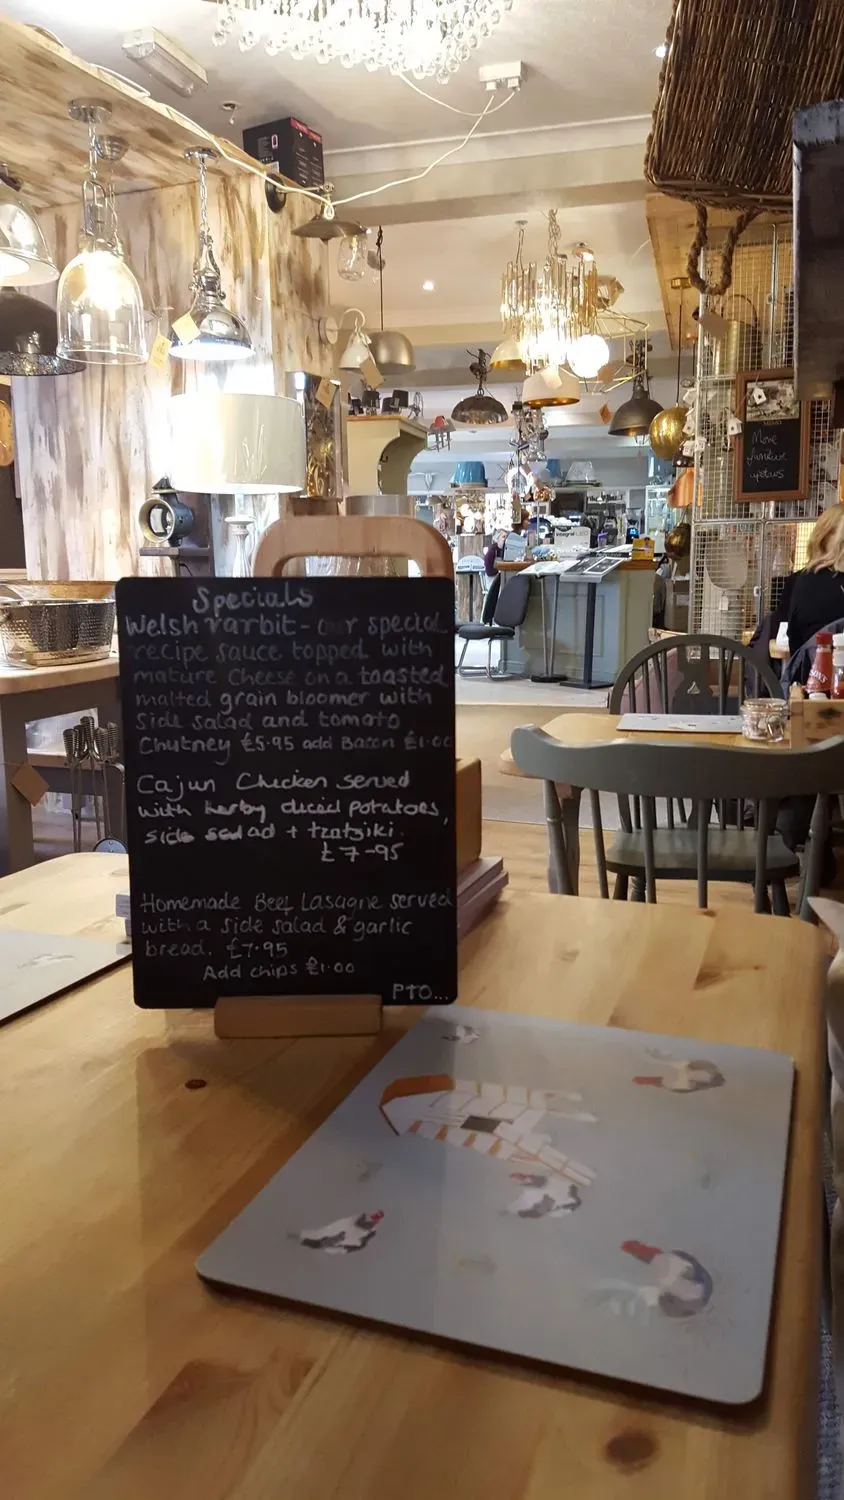 Specials
Welsh rarbit - our special
recipe sauce topped with
mature cheese on a toasted
malted grain bloomer with
side salad and tomato
Chutney £5.95 add Bacon £1.00
Cajun Chicken served
with herby diced potatoes,
side salad + tzatziki.
£7-95
Homemade Beef Lasagne served
with a side salad & garlic
bread. £7.95
Add chips £1.00
PTO...
More
furniture
upstairs
integral LED